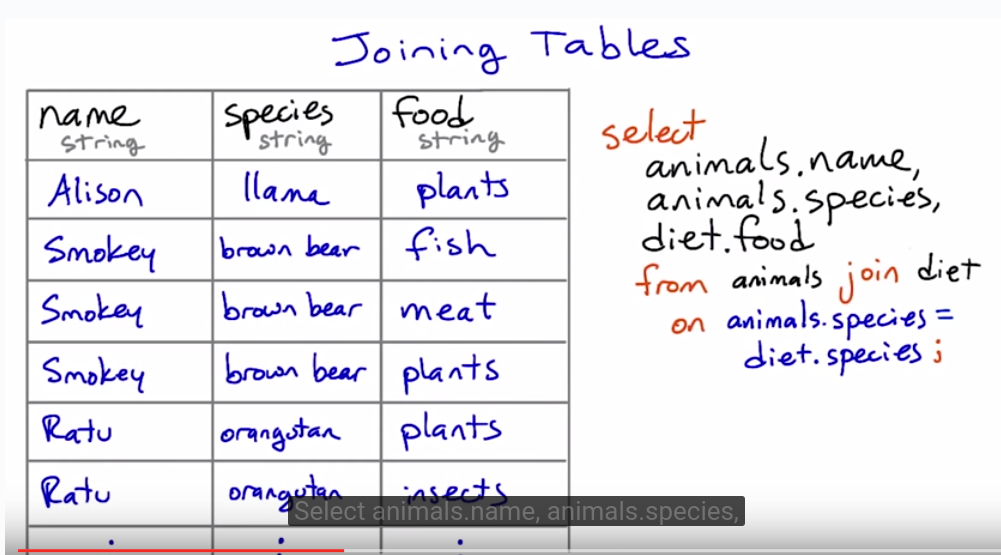 Joining Tables
name species food
string string string
Alison llama plants
Smokey brown bear fish
Smokey brown bear meat
Smokey brown bear plants
Ratu orangutan plants
Ratu orangutan insects
select
animals.name,
animals.species,
diet.food
from animals join diet
on animals.species =
diet.species ;
Select animals.name, animals.species,